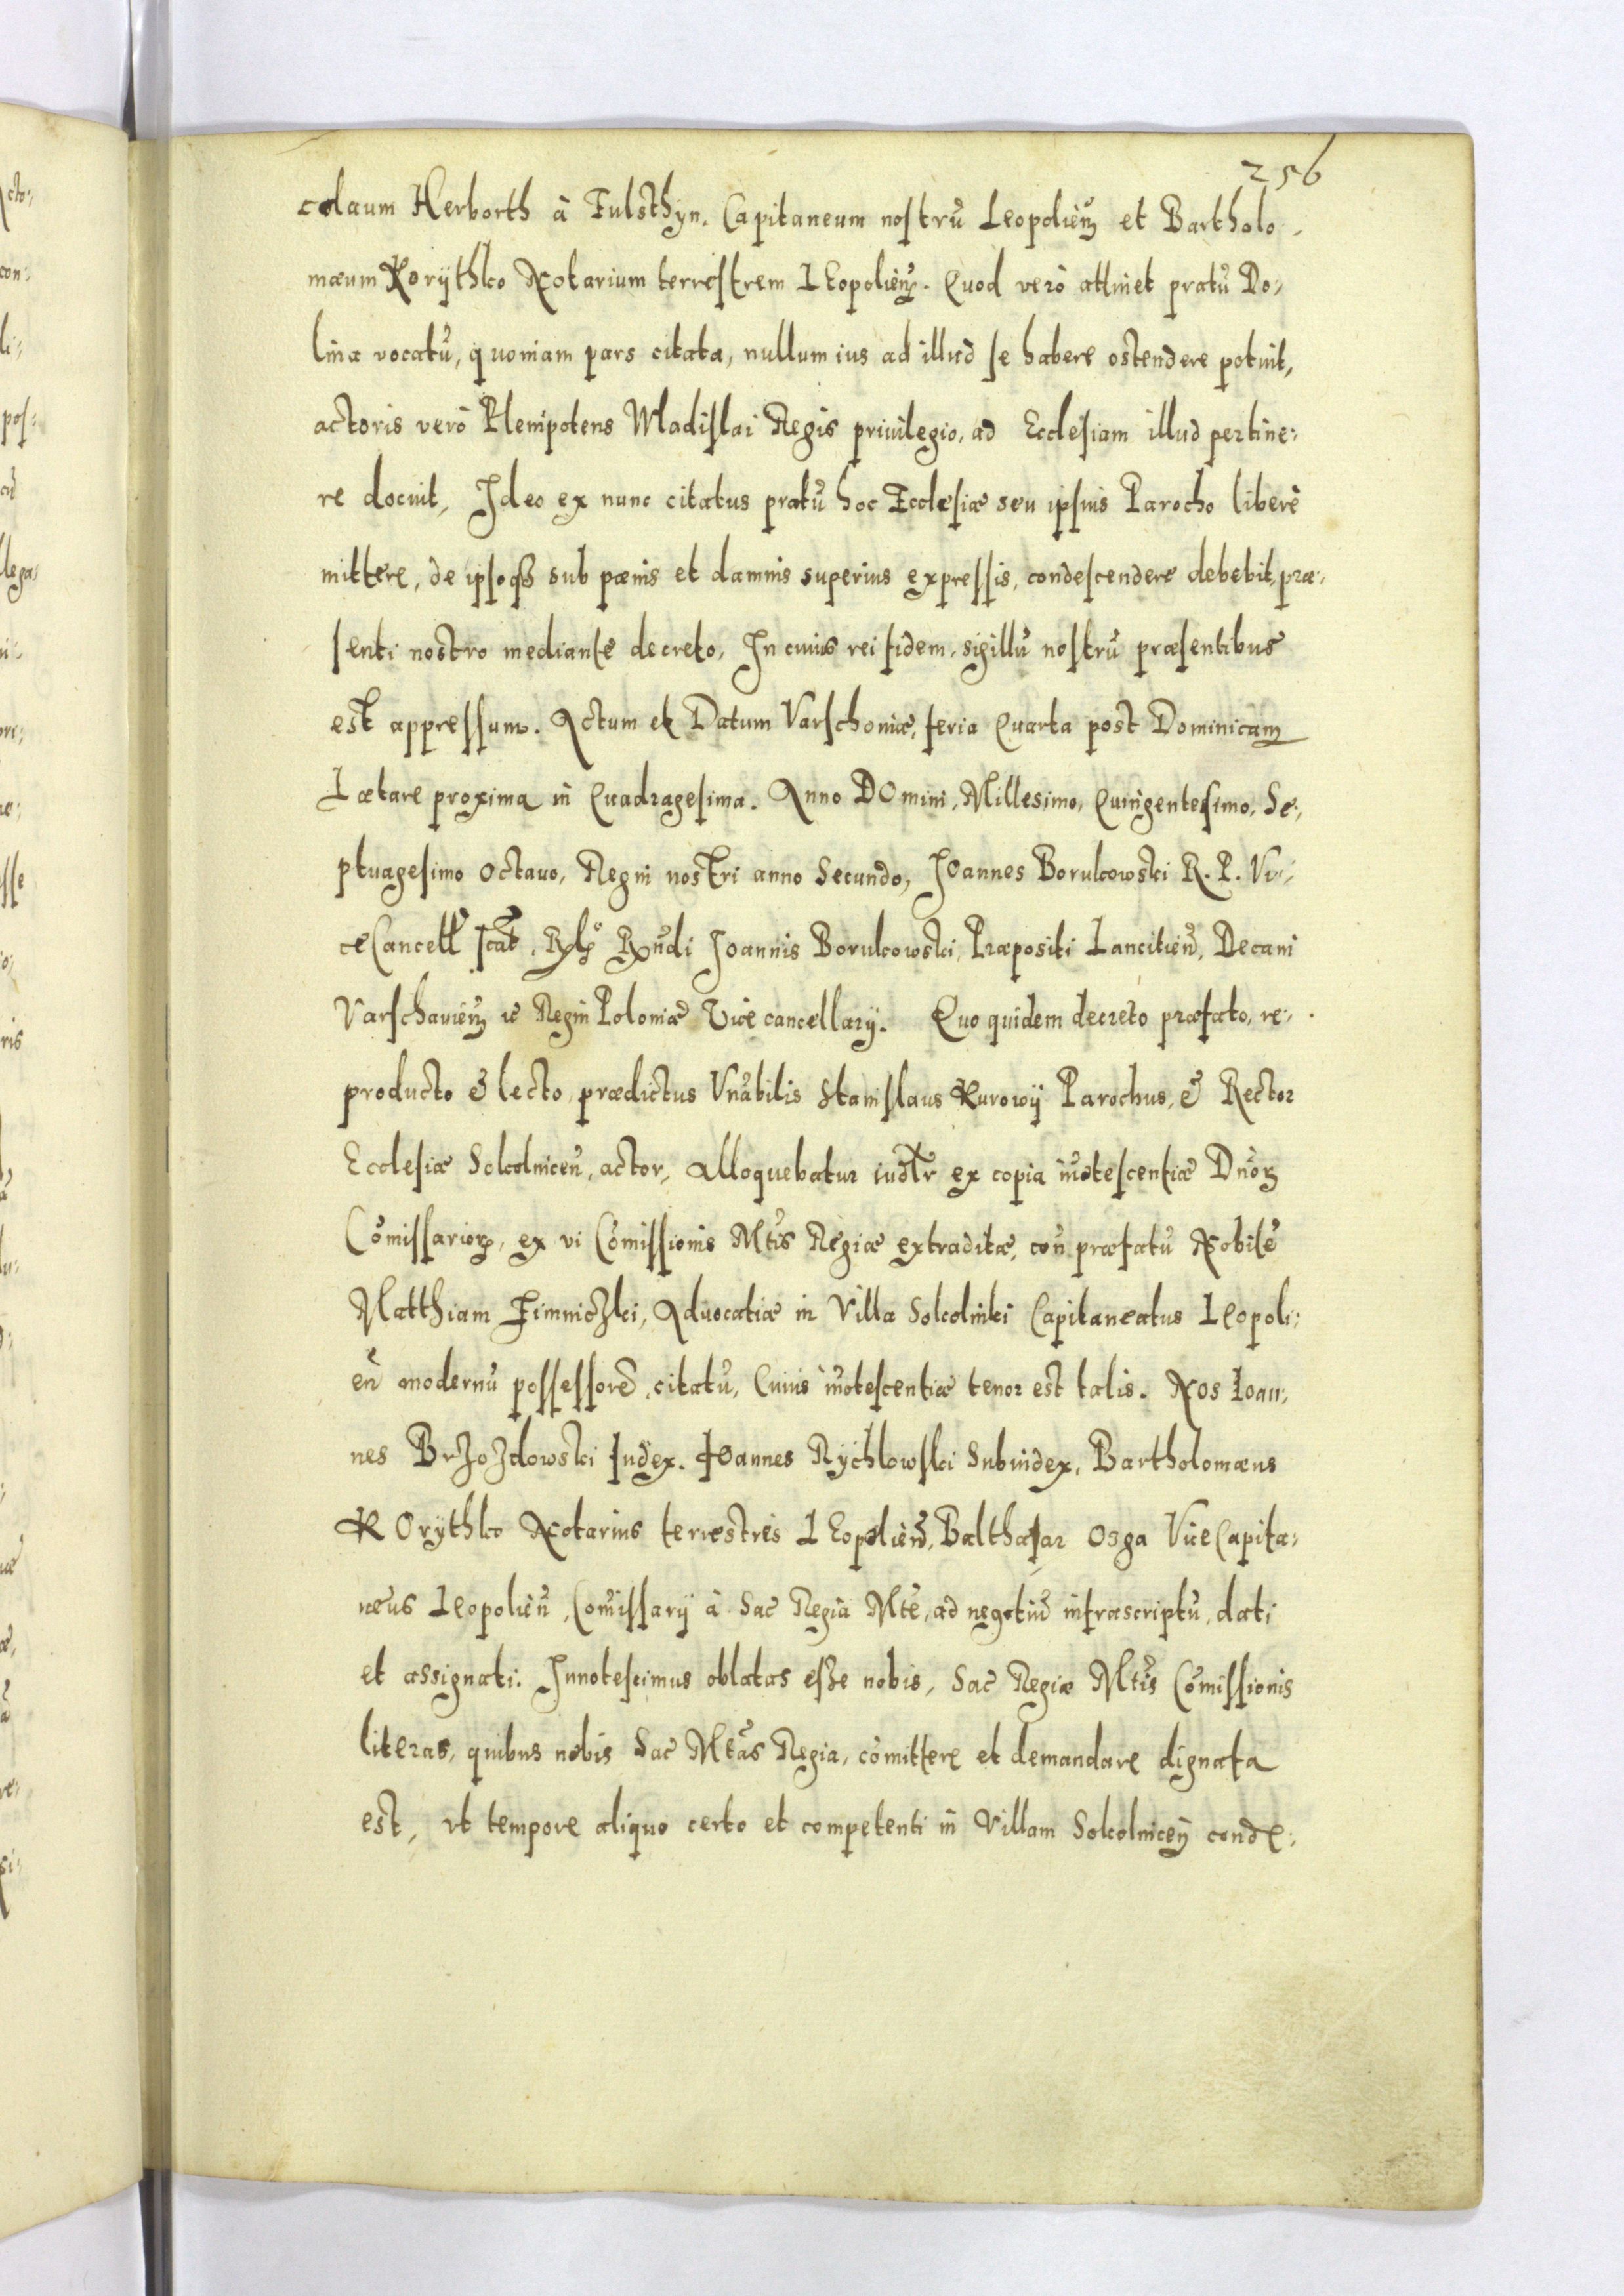 256
colaum Herborth à Fulsthyn. Capitaneum nostrũ Leopolieñ et Bartholo-
mæum Korÿthko Notarium terrestrem LEopolieñ. Quod verò attinet pratũ Do:
lina vocatũ, quoniam pars citata, nullum ius ad illud se habere ostendere potuit,
actoris verò Plenipotens Wladislai Regis priuilegio, ad Ecclesiam illud pertine:
re docuit, Ideo ex nunc citatus pratũ hoc Ecclesiæ seu ipsius Parocho liberè
mittere, de ipsoqȝ sub pænis et damnis superius expressis, condescendere debebit, præ:
senti nostro mediante decreto, In cuius rei fidem, sigillũ nostrũ præsentibus
est appressum. Actum et Datum Varschouiæ, feria Quarta post Dominicam
Lætare proxima in Quadragesima. Anno DOmini, Millesimo, Quingentesimo, Se:
ptuagesimo octauo, Regni nostri anno Secundo, Joannes Borukowski R. P. Vi:
ceCancell Rñdi Joannis Borukowski, Præpositi Lancitieñ, Decani
Varschauieñ ac Regni Poloniæ Vice cancellarÿ. Quo quidem decreto præfato, re:
producto & lecto, prædictus Vnãbilis Stanislaus Kurowÿ Parochus, & Rector
Ecclesiæ Sokolniceñ, actor, alloquebatur iudr ex copia iñotescentiæ Dñoȝ
Cõmissarioȝ, ex vi Cõmissionis Mtis Regiæ extraditæ, coñ præfatũ Nobilẽ
Matthiam Zimniczki, Aduocatiæ in Villa Sokolniki Capitaneatus Leopoli:
eñ modernũ possessorẽ, citatũ, Cuius iñotescentiæ tenor est talis. Nos Ioan:
nes Brzozdowski Judex. Joannes Rychlowski Subiudex, Bartholomæus
KOrÿthko Notarius terrestris LEopolieñ, Balthasar Ozga ViceCapita:
neus Leopolieñ, Com̃issarÿ à Sac Regia Mtẽ, ad negotiũ infrascriptũ, dati
et assignati. Innotescimus oblatas esse nobis, Sac Regiæ Mtis Cõmissionis
literas, quibus nobis Sac Mtãs Regia, cõmittere et demandare dignata
est, vt tempore aliquo certo et competenti in Villam Sokolnicÿ conde: